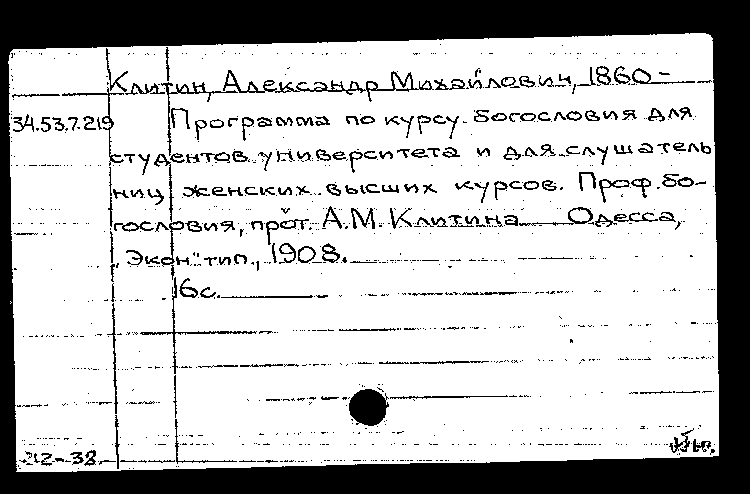 Клитин, Александр Михайлович, 1860 –
34.53.7.219 Программа по курсу богословия для
студентов университета и для слушатель
ниц женских высших курсов. Проф. бо-
гословия, прот. А.М. Клитина Одесса,
„Экон." тип., 1908.
16 с.
212-38.